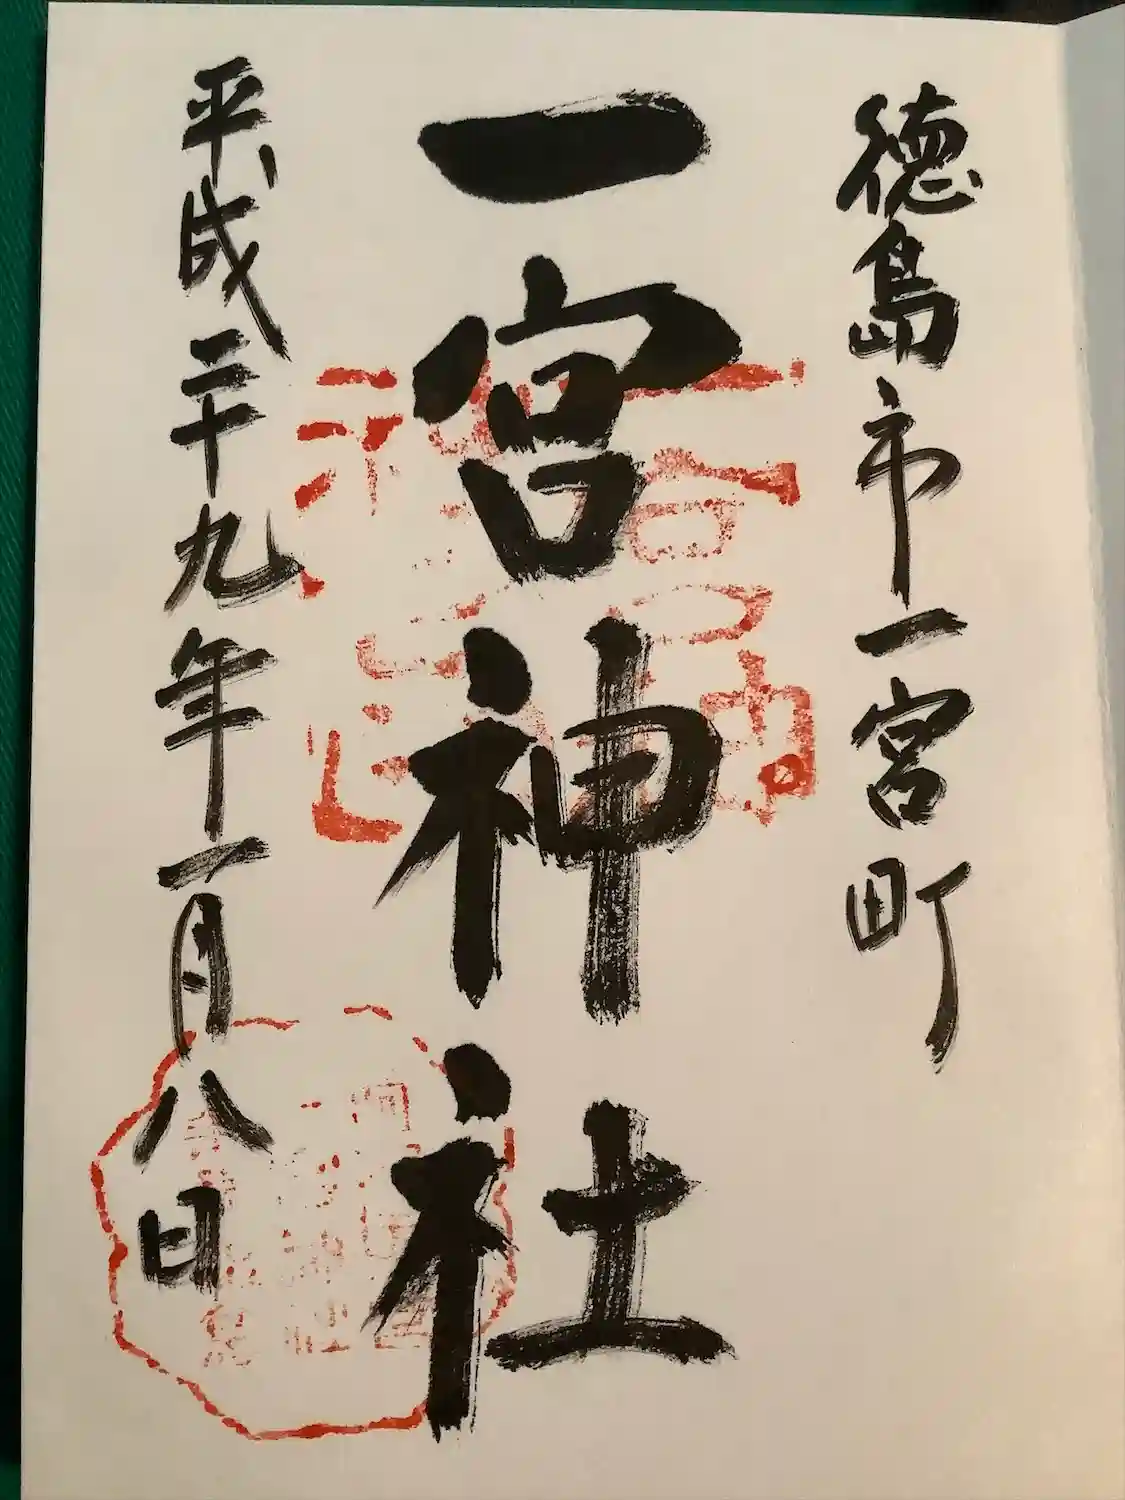 徳島市一宮町
一宮神社
平成二十九年一月八日